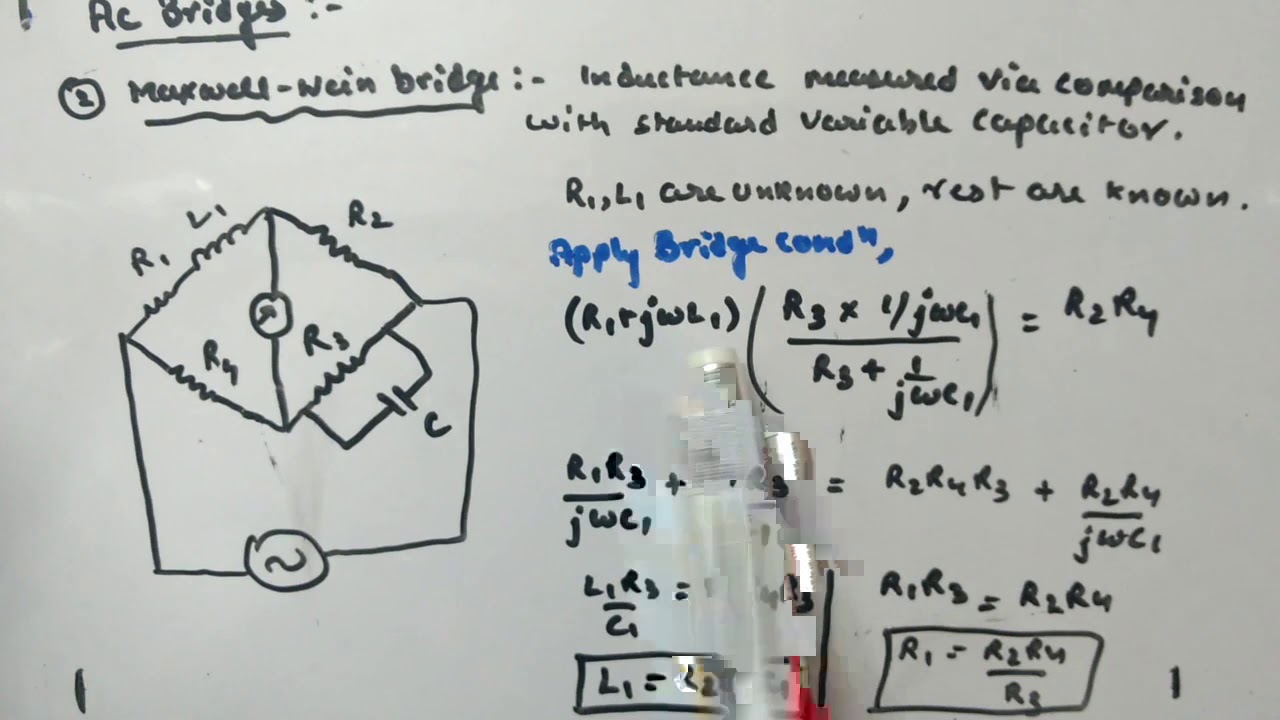 AC Bridges :-
② Maxwell-Wein bridge :- Inductance measured via comparison
with standard variable capacitor.
R1, L1 are unknown, rest are known.
Apply Bridge condⁿ,
L1
R1
R2
R4
R3
C
(R1+jωL1) (R3 × 1/jωC1 / R3 + 1/jωC1) = R2R4
R1R3/jωC1 + R3 = R2R4R3 + R2R4/jωC1
L1R3/C1 = R3
R1R3 = R2R4
L1 = R2
R1 = R2R4/R3